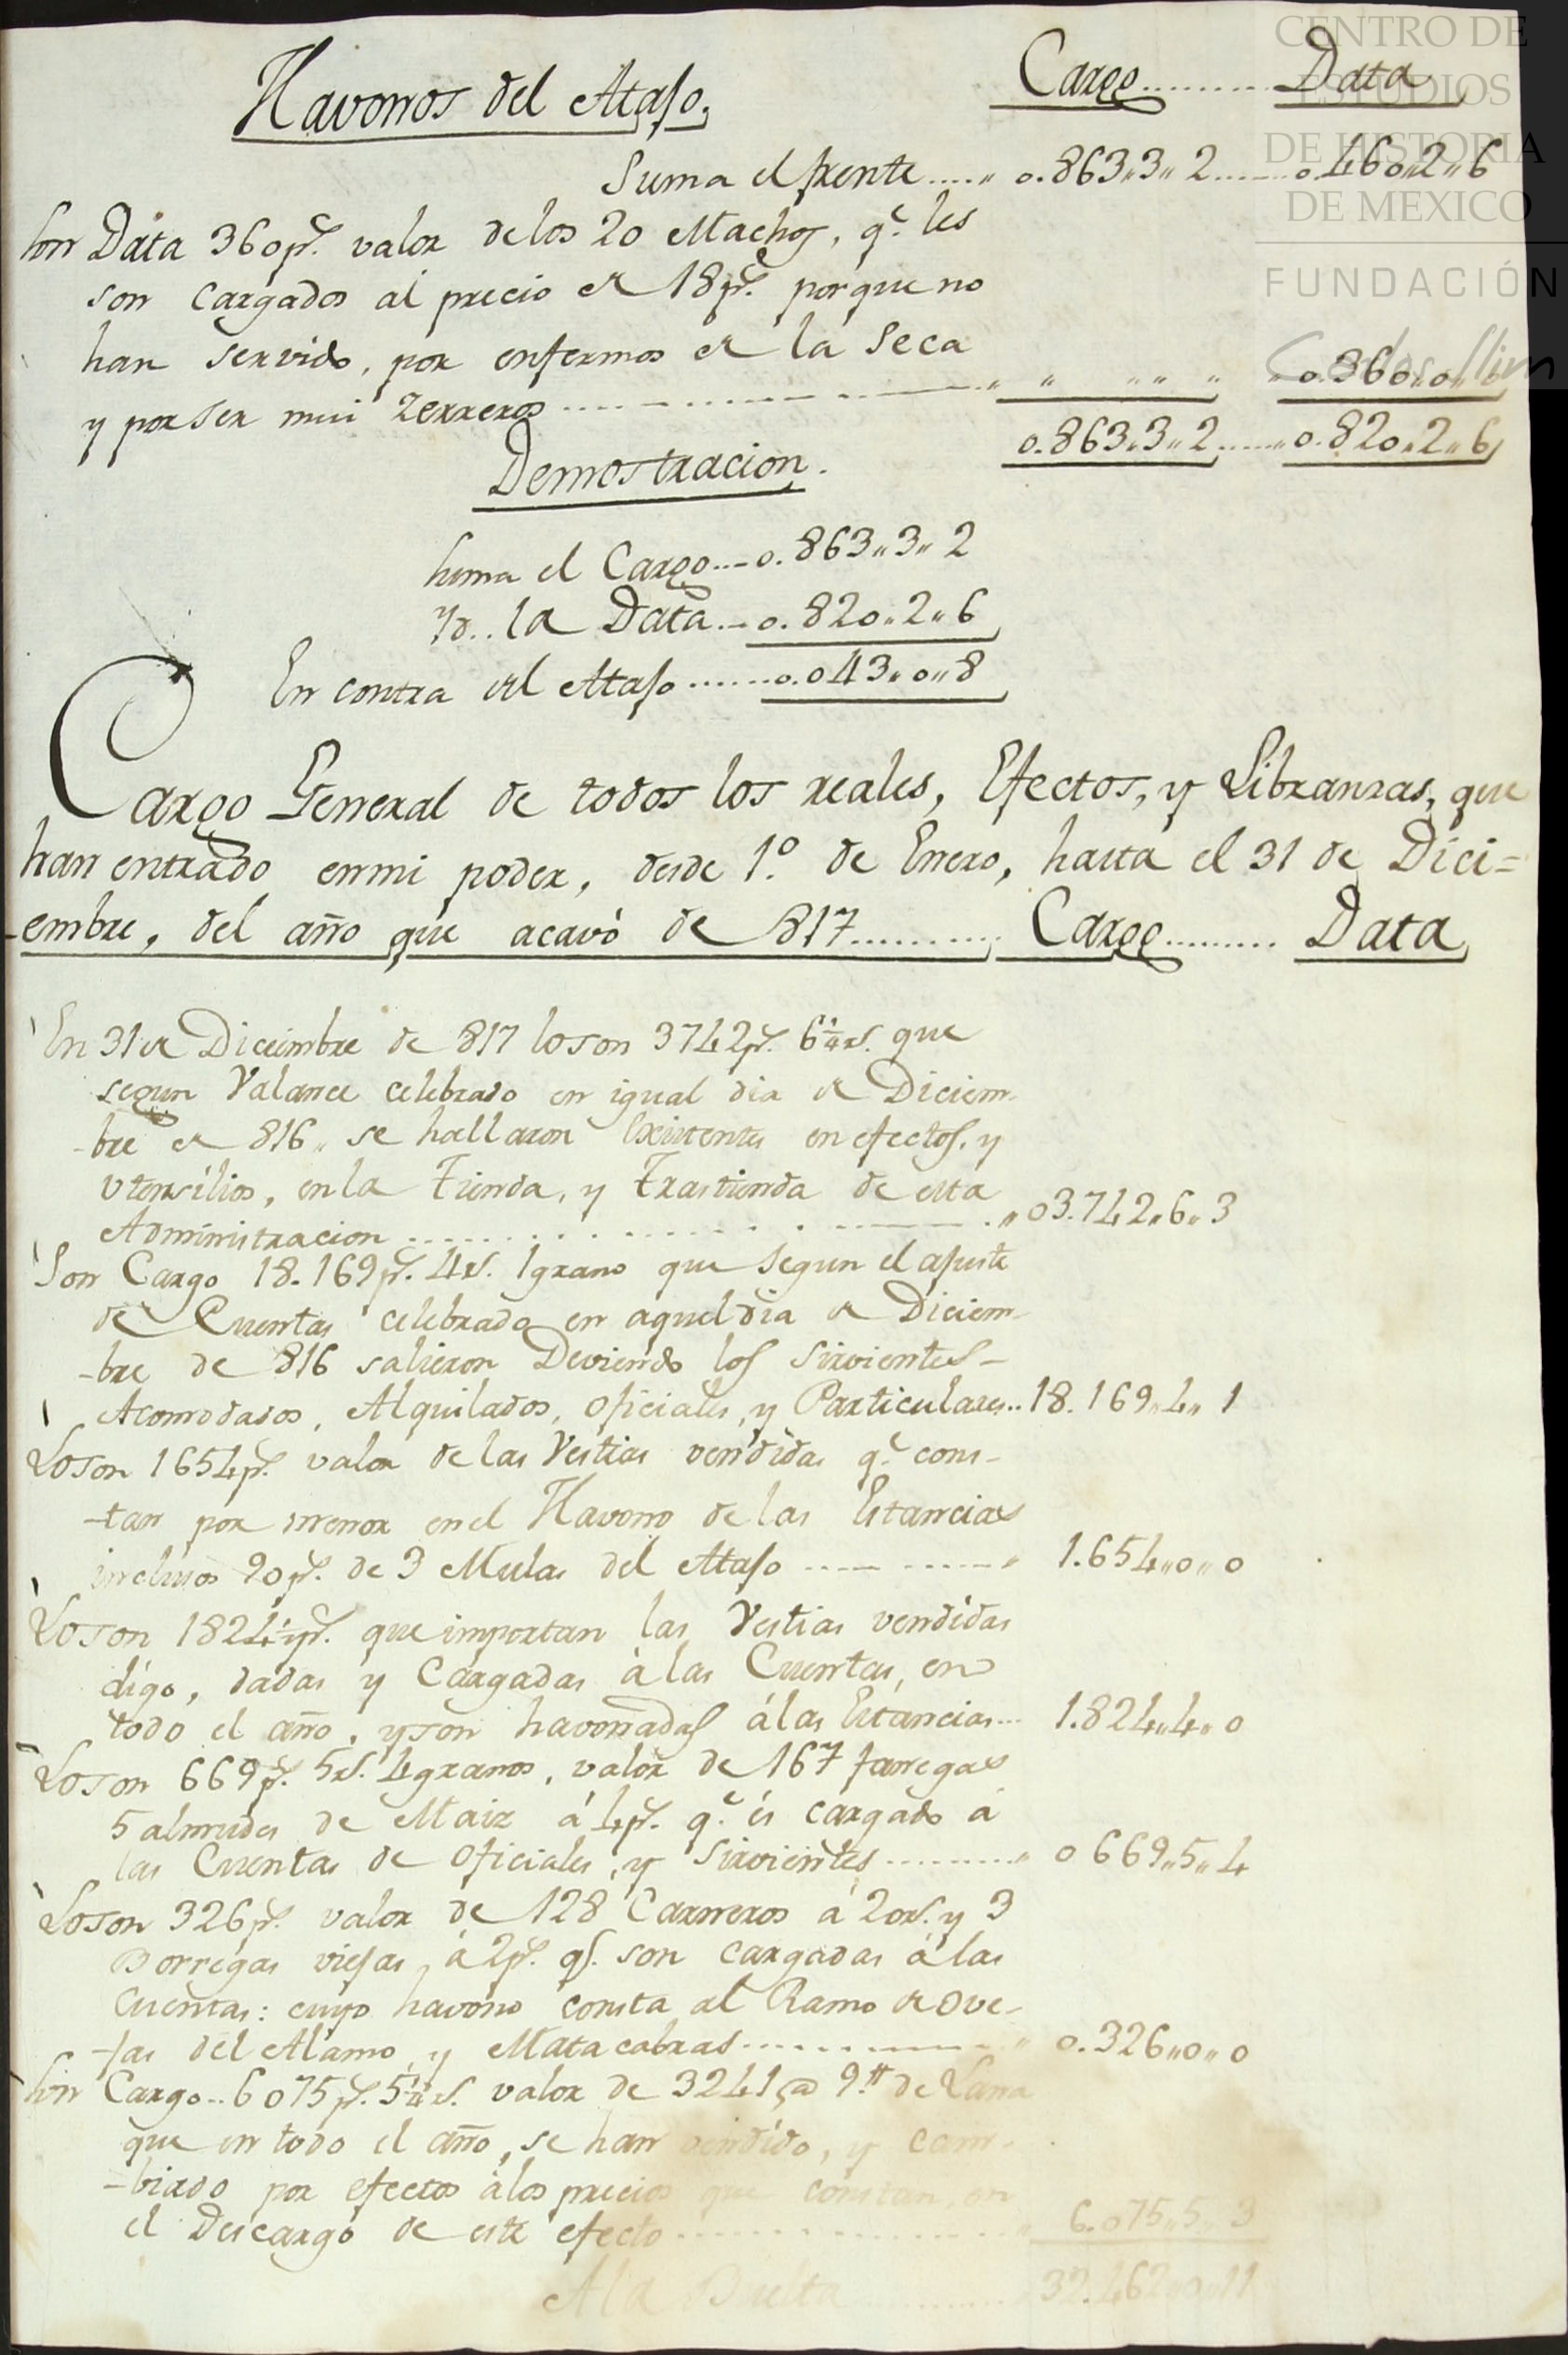 CENTRO DE
ESTUDIOS
DE HISTORIA
DE MEXICO
FUNDACIÓN
Havonos del Atajo. Cargo.......... Data
Suma el frente..... 0.863,,3,,2....... 0.460,,2,,6
Son Data 360p.s valor de los 20 Machos, q.e les
son cargados al precio de 18p.s porque no
han servido, por enfermos de la Seca
y por ser mui Zerreros ............ " " " " " 0.360,,0,,0
0.863,,3,,2...... 0.820,,2,,6
Demostracion.
Suma el Cargo... 0.863,,3,,2
Yd.. la Data... 0.820,,2,,6
En contra del Atajo....... 0.043,,0,,8
Cargo General de todos los reales, Efectos, y Libranzas, que
han entrado en mi poder, desde 1.º de Enero, hasta el 31 de Dici=
-embre, del año que acavó de 817........... Cargo......... Data
En 31 de Diciembre de 817 lo son 3742p.s 6¼ r.s que
segun Valance celebrado en igual dia de Diciem-
-bre de 816,, se hallaron Existentes en efectos, y
Utensilios, en la Tienda, y Trastienda de esta
Administracion ............ 03.742,,6,,3
Son Cargo 18.169p.s 4r.s 1grano que segun el ajuste
de Cuentas celebrado en aquel dia de Diciem-
-bre de 816 salieron Deviendo los Sirvientes-
Acomodados, Alquilados, Oficiales, y Particulares.. 18.169,,4,,1
Lo son 1654p.s valor de las Vestias vendidas q.e cons-
-tan por menor en el Havono de las Estancias
inclusos 90p.s de 3 Mulas del Atajo ............ 1.654,,0,,0
Lo son 1824½p.s que importan las Vestias vendidas
digo, dadas y Cargadas à las Cuentas, en
todo el año, y son havonadas á las Estancias... 1.824,,4,,0
Lo son 669p.s 5r.s 4granos, valor de 167 fanegas
5 almudes de Maiz á 4p.s q.e és cargado a
las Cuentas de Oficiales, y Sirvientes.......... 0669,,5,,4
Lo son 326p.s valor de 128 Carneros á 20r.s y 3
Borregas viejas, á 2p.s q.s son cargadas á las
Cuentas: cuyo havono consta al Ramo de Ove-
-jas del Alamo, y Mata cabras............ 0.326,,0,,0
Son Cargo.. 6075p.s 5¼r.s valor de 3241@ 9.tt de Lana
que en todo el año, se han vendido, y cam-
-biado por efectos à los precios que constan, en
el Descargo de este efecto............ 6.075,,5,,3
A la Buelta .......... 32.462,,0,,11